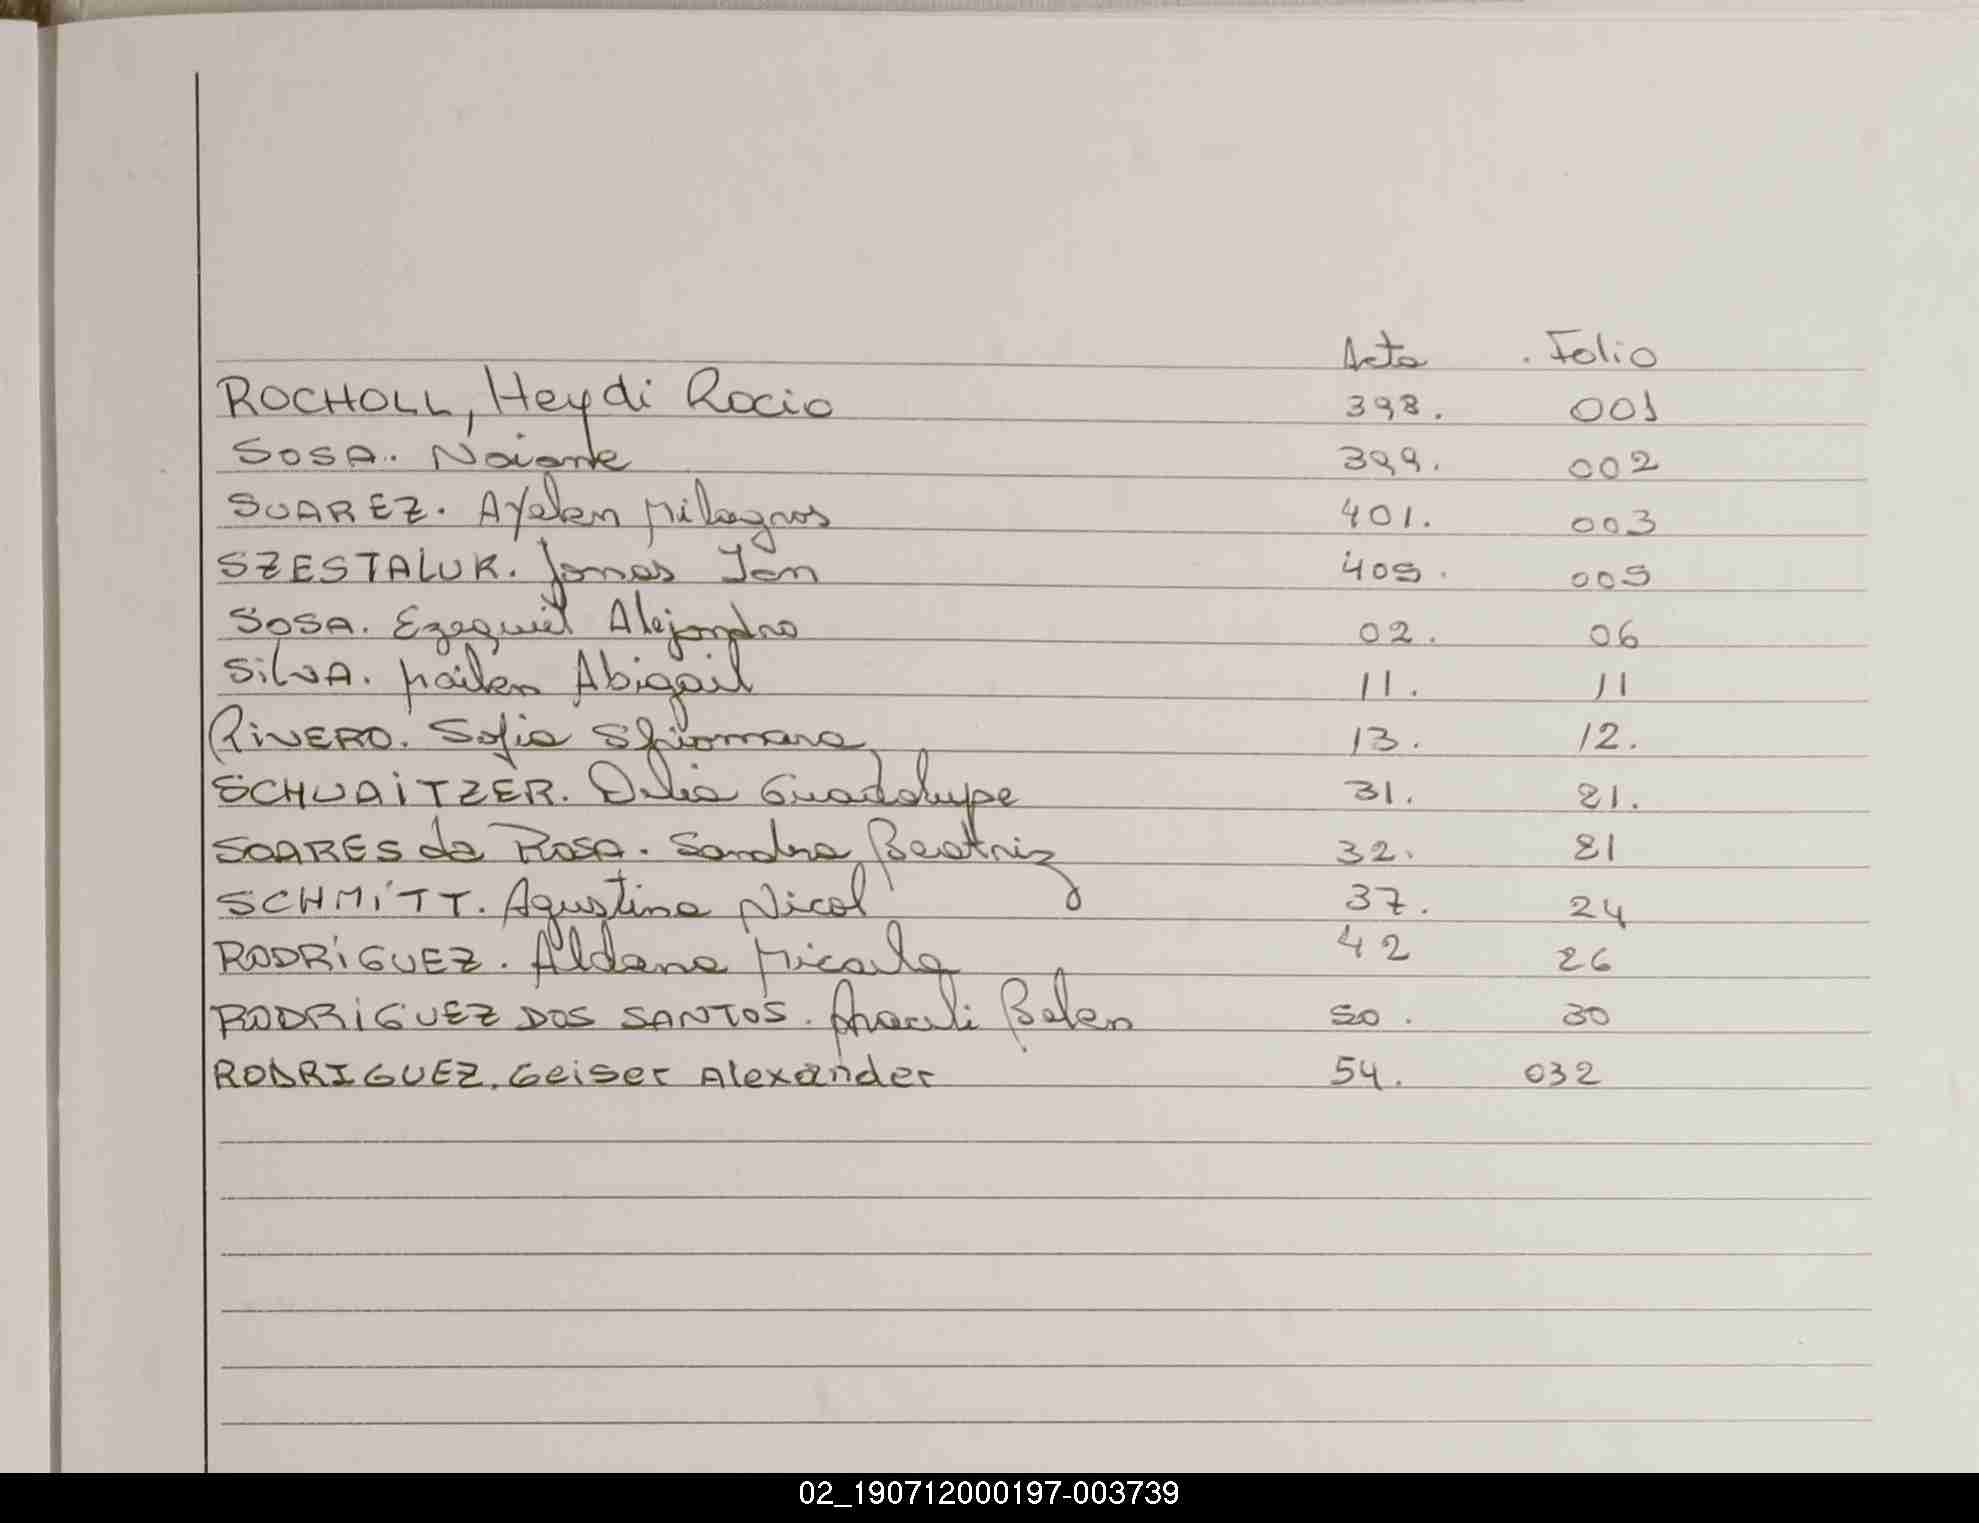 Acta . Folio
ROCHOLL, Heydi Rocio 398. 001
SOSA. Naiara 399. 002
SUAREZ. Ayelen Milagros 401. 003
SZESTALUK. Jonas Ian 405. 005
SOSA. Ezequiel Alejandro 02. 06
SILVA. Mailen Abigail 11. 11
RIVERO. Sofia 13. 12.
SCHUAITZER. Delia Guadalupe 31. 21.
SOARES da ROSA. Sandra Beatriz 32. 21
SCHMITT. Agustina Nicol 37. 24
RODRIGUEZ. Aldana Micaela 42 26
RODRIGUEZ DOS SANTOS. Araceli Belen 50. 30
RODRIGUEZ. Geiser Alexander 54. 032
02_190712000197-003739